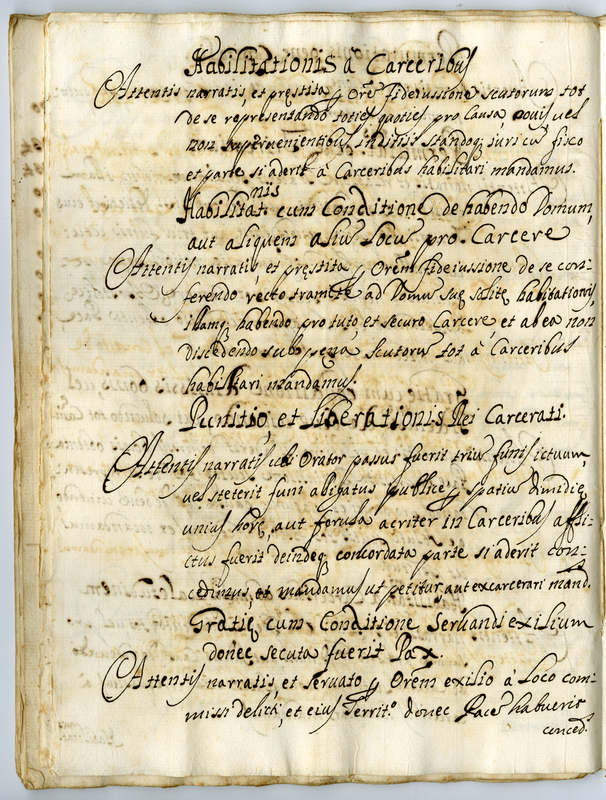 Habilitationis à Carceribus
Attentis narratis, et pręstita p Orẽ fideiussione scutorum tot
de se repręsentando toties quoties pro Causa, novis vel
non supervenientibus inditiis standoq; iuri cũ fisco
et parte si aderit à Carceribus habilitari mandamus.
Habilitat.nis cum Conditione de habendo Domum,
aut aliquem aliũ Locũ pro Carcere
Attentis narratis, et pręstita p Orẽm fideiussione de se con-
ferendo recto tramite ad Domũ suę solitę habitationis,
illamq; habendo pro tuto, et securo Carcere, et ab ea non
discedendo sub pęna scutorũ tot à Carceribus
habilitari mandamus.
Punitio, et liberationis Rei Carcerati.
Attentis narratis ubi Orator passus fuerit triũ funis ictuum,
vel steterit funi aligatus publice p spatiũ dimidię
unius horę, aut ferula acriter in Carceribus affli-
ctus fuerit deindeq; concordata parte si aderit con-
cedimus, et mandamus ut petitur, aut excarcerari mand.
Gratię cum Conditione servandi exilium
donec secuta fuerit Pax.
Attentis narratis, et servato p Orẽm exilio à Loco com-
missi delicti, et eius Territ.o donec Pacẽ habueris
conced.s